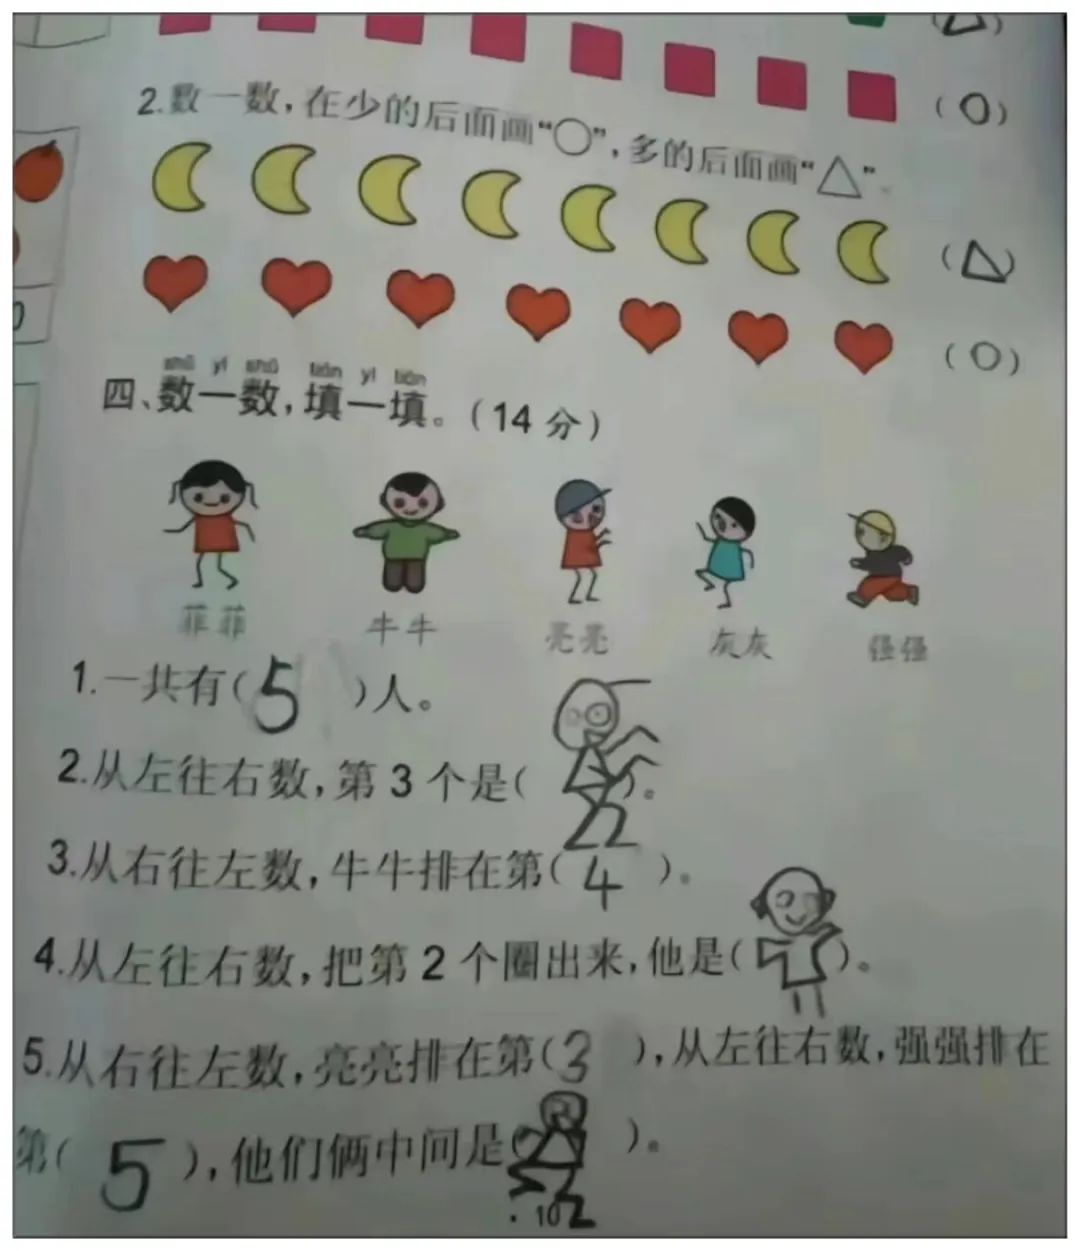 2.数一数,在少的后面画“○”,多的后面画“△”。
shǔ yī shǔ tián yī tián
四、数一数,填一填。(14分)
菲菲 牛牛 亮亮 灰灰 强强
1.一共有(5)人。
2.从左往右数,第3个是( )。
3.从右往左数,牛牛排在第(4)。
4.从左往右数,把第2个圈出来,他是( )。
5.从右往左数,亮亮排在第(3),从左往右数,强强排在
第(5),他们俩中间是( )。
· 10